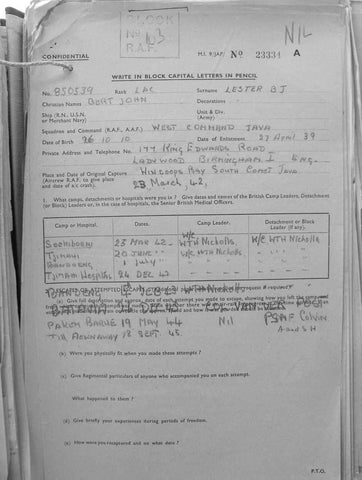 BLOCK
No 103
R.A.F.
NIL
CONFIDENTIAL
M.I. 9/JAP/ No 23334 A
WRITE IN BLOCK CAPITAL LETTERS IN PENCIL
No. 850539 Rank LAC Surname LESTER BJ
Christian Names BERT JOHN Decorations -
Ship (R.N., U.S.N. or Merchant Navy) Unit & Div. (Army)
Squadron and Command (R.A.F., A.A.F.) WEST COMMAND JAVA
Date of Birth 26 10 10 Date of Enlistment 27 April 39
Private Address and Telephone No. 177 KING EDWARDS ROAD
LADYWOOD BIRMINGHAM 1 ENG.
Place and Date of Original Capture BAY SOUTH COAST JAVA
(Aircrew R.A.F. to give place and date of a/c crash). 23 March 42.
1. What camps, detachments or hospitals were you in? Give dates and names of the British Camp Leaders, Detachment (or Block) Leaders or, in the case of hospitals, the Senior British Medical Officers.
Camp or Hospital. Dates. Camp Leader. Detachment or Block Leader (if any).
23 MAR 42 - W/C WTH Nicholls W/C WTH Nicholls
20 JUNE " - W/C WTH Nicholls
1 July " -
24 DEC 43
(a) Give full description and approx. date of each attempt you made to escape, showing how you left the camp
19 MAY 44 Nil
18 SEPT. 45. A and S H
(b) Were you physically fit when you made these attempts?
(c) Give Regimental particulars of anyone who accompanied you on each attempt.
What happened to them?
(d) Give briefly your experience during periods of freedom.
(e) How were you recaptured and on what date?
P.T.O.